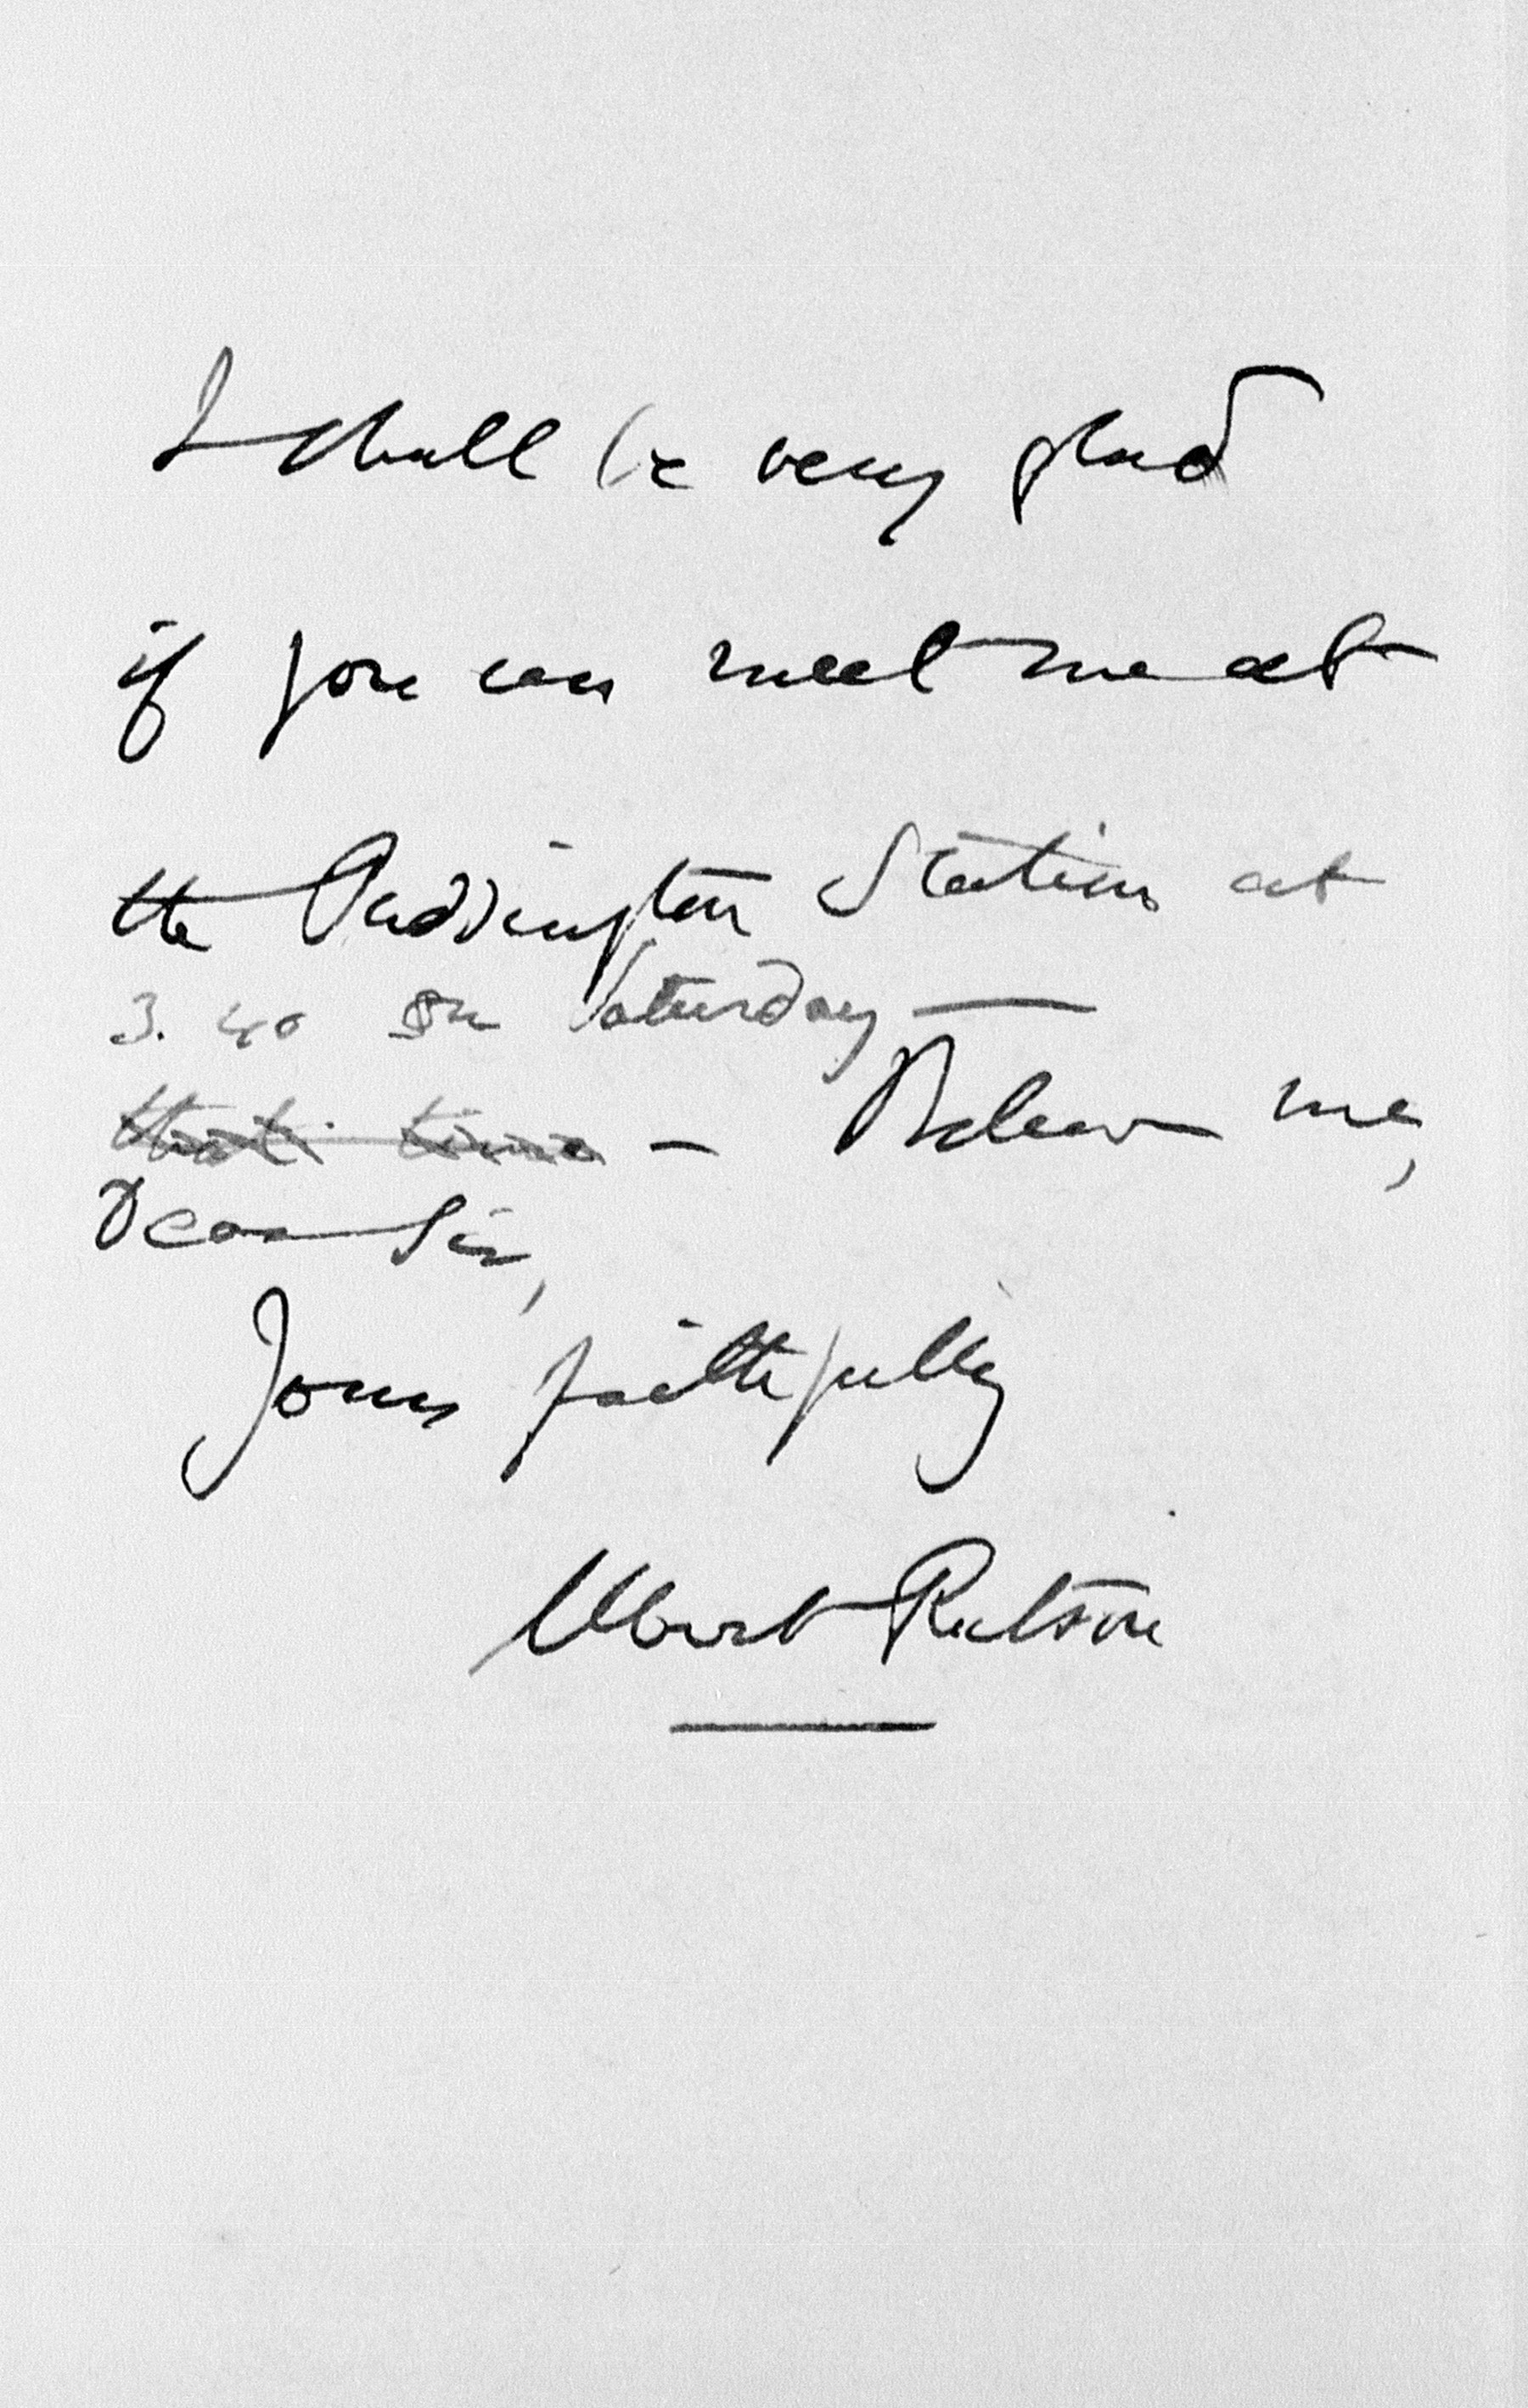 I shall be very glad
if you can meet me at
the Paddington Station at
3. 40 on Saturday —
that time – Believe me,
Dear Sir,
Yours faithfully
Albert Rutson